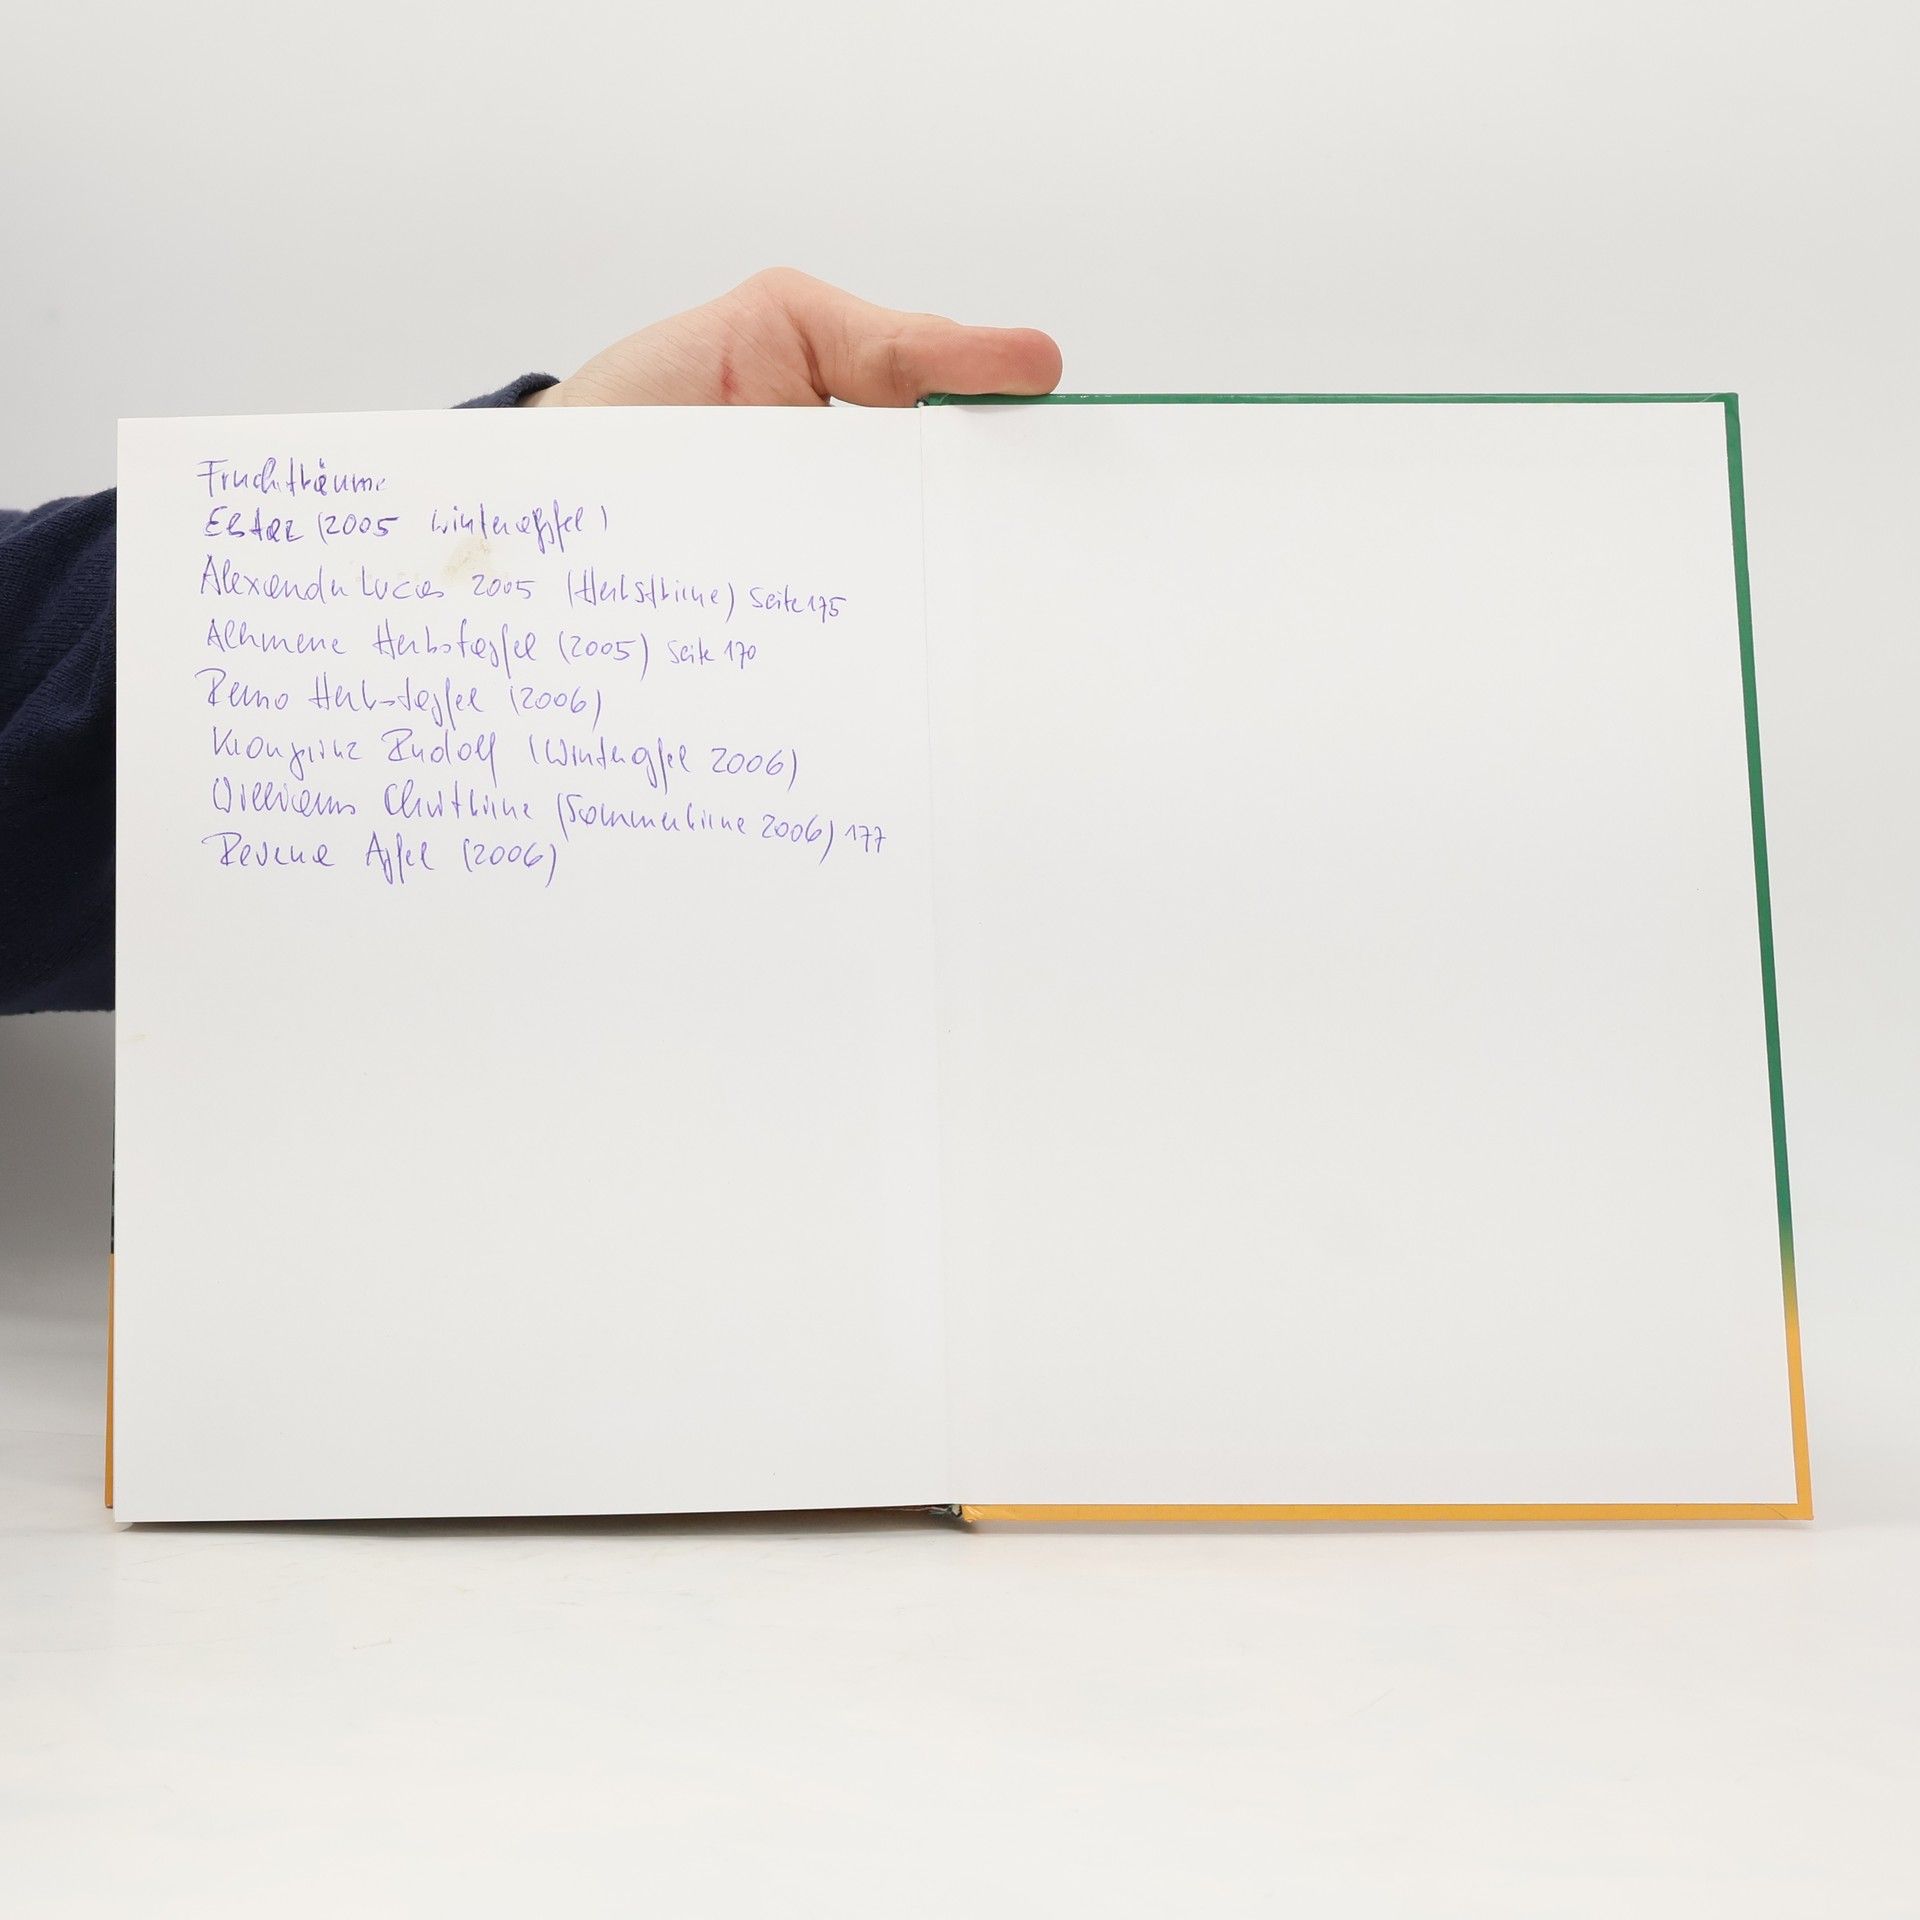 Fruchtbäume
Elstar (2005 Winterapfel)
Alexander Lucas 2005 (Herbstbirne) Seite 175
Alkmene Herbstapfel (2005) Seite 170
Remo Herbstapfel (2006)
Kronprinz Rudolf (Winterapfel 2006)
Williams Christbirne (Sommerbirne 2006) 177
Revena Apfel (2006)